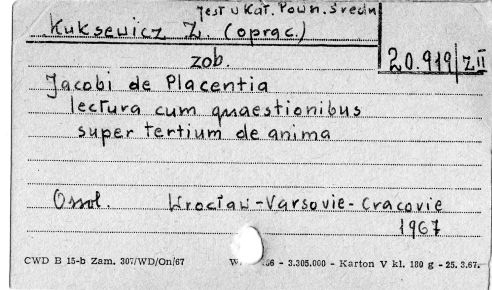 Jest u Kat. Pown. Średn
Kuksewicz Z. (oprac.)
20.919/zII
zob.
Jacobi de Placentia
lectura cum quaestionibus
super tertium de anima
Ossol. Wrocław-Varsovie-Cracovie
1967
CWD B 15-b Zam. 307/WD/On/67 66 - 3.305.000 - Karton V kl. 180 g - 25. 3.67.